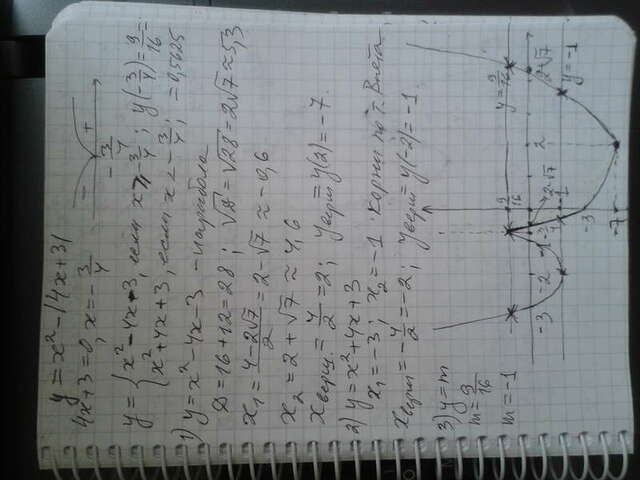 y = x² - |4x+3|
4x+3=0, x=-3/4
- + -3/4
y = { x²-4x-3, если x ≥ -3/4; y(-3/4) = 9/16 =
x²+4x+3, если x < -3/4; = 0,5625
1) y = x²-4x-3 - парабола
D = 16+12 = 28; √D = √28 = 2√7 ≈ 5,3
x₁ = (4-2√7)/2 = 2-√7 ≈ -0,6
x₂ = 2+√7 ≈ 4,6
xверш. = 4/2 = 2; yверш = y(2) = -7.
2) y = x²+4x+3
x₁ = -3; x₂ = -1 корни по т. Виета
xверш = -4/2 = -2; yверш = y(-2) = -1.
3) y = m
m = 9/16
m = -1
y = 9/16
9/16
-3 -2 -1 -3/4 2-√7 2 2+√7
-1 y = -1
-3
-7